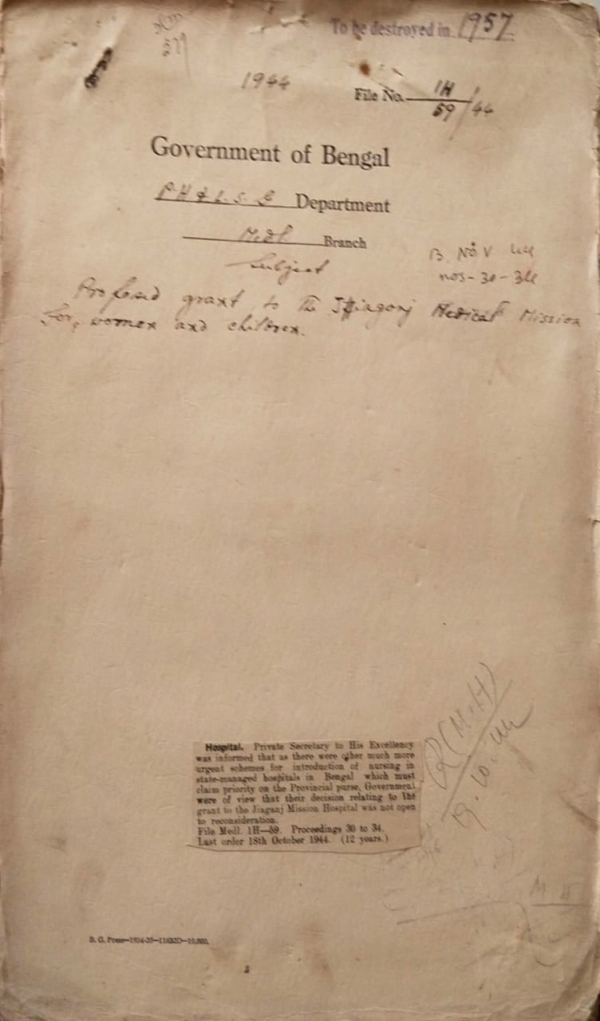 To be destroyed in 1957.
1944
File No. 1H
59/44
Government of Bengal
P.H & L.S.G Department
Medl Branch
Subject
B. Nov 44
nos-30-34
Proposed grant to the Jiagonj Medical Mission
for women and children.
Hospital. Private Secretary to His Excellency
was informed that as there were other much more
urgent schemes for introduction of nursing in
state-managed hospitals in Bengal which must
claim priority on the Provincial purse, Government
were of view that their decision relating to the
grant to the Jiaganj Mission Hospital was not open
to reconsideration.
File Medl. 1H—59. Proceedings 30 to 34.
Last order 18th October 1944. (12 years.)
R(M.H)
19.10.44
M H
B. G. Press—1934-35—